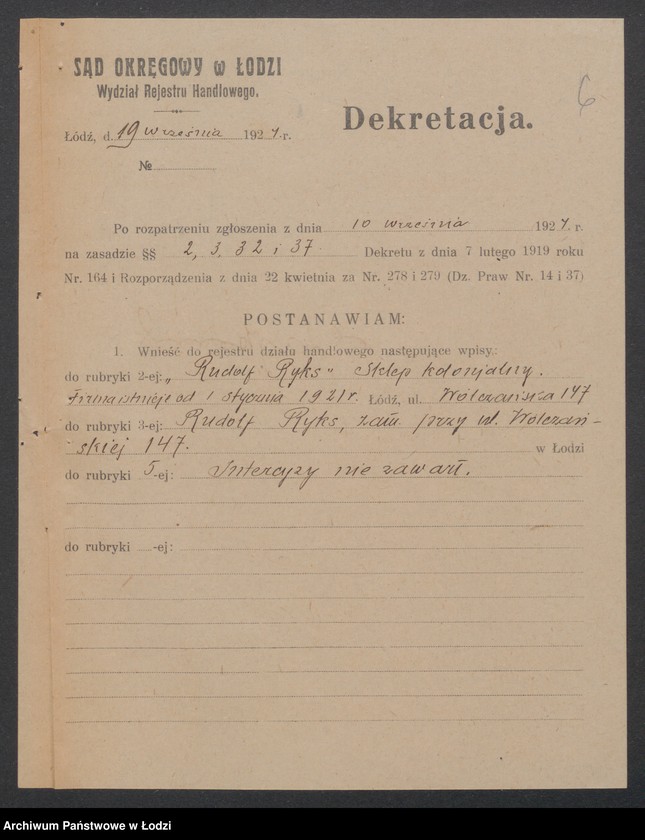 SĄD OKRĘGOWY w ŁODZI
Wydział Rejestru Handlowego.
6
Dekretacja.
Łódź, d. 19 września 1921. r.
№
Po rozpatrzeniu zgłoszenia z dnia 10 września 1921. r.
na zasadzie §§ 2, 3, 32 i 37. Dekretu z dnia 7 lutego 1919 roku
Nr. 164 i Rozporządzenia z dnia 22 kwietnia za Nr. 278 i 279 (Dz. Praw Nr. 14 i 37)
POSTANAWIAM:
1. Wnieść do rejestru działu handlowego następujące wpisy:
do rubryki 2-ej: „Rudolf Ryks" Sklep kolonjalny.
Firma istnieje od 1 stycznia 1921 r. Łódź, ul. Wólczańska 147
do rubryki 3-ej: Rudolf Ryks, zam. przy ul. Wólczań-
skiej 147. w Łodzi
do rubryki 5-ej: Intercyzy nie zawarł.
do rubryki -ej:
Archiwum Państwowe w Łodzi